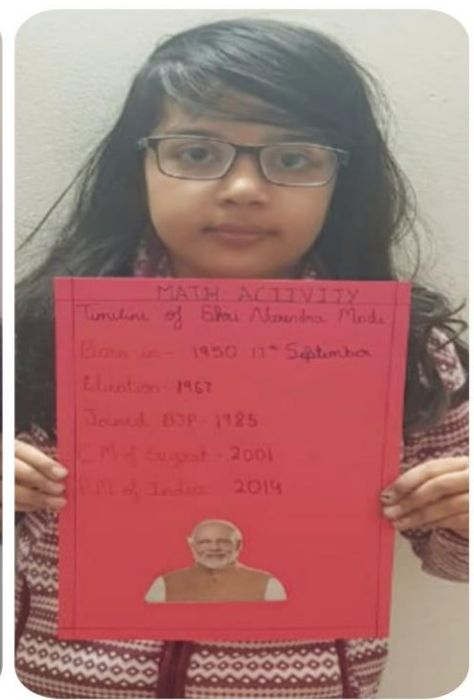 MATH ACTIVITY
Timeline of Shri Narendra Modi
Born in - 1950 17th September
Eluation - 1967
Joined BJP - 1985
C M of Gujrat - 2001
P.M of India 2014